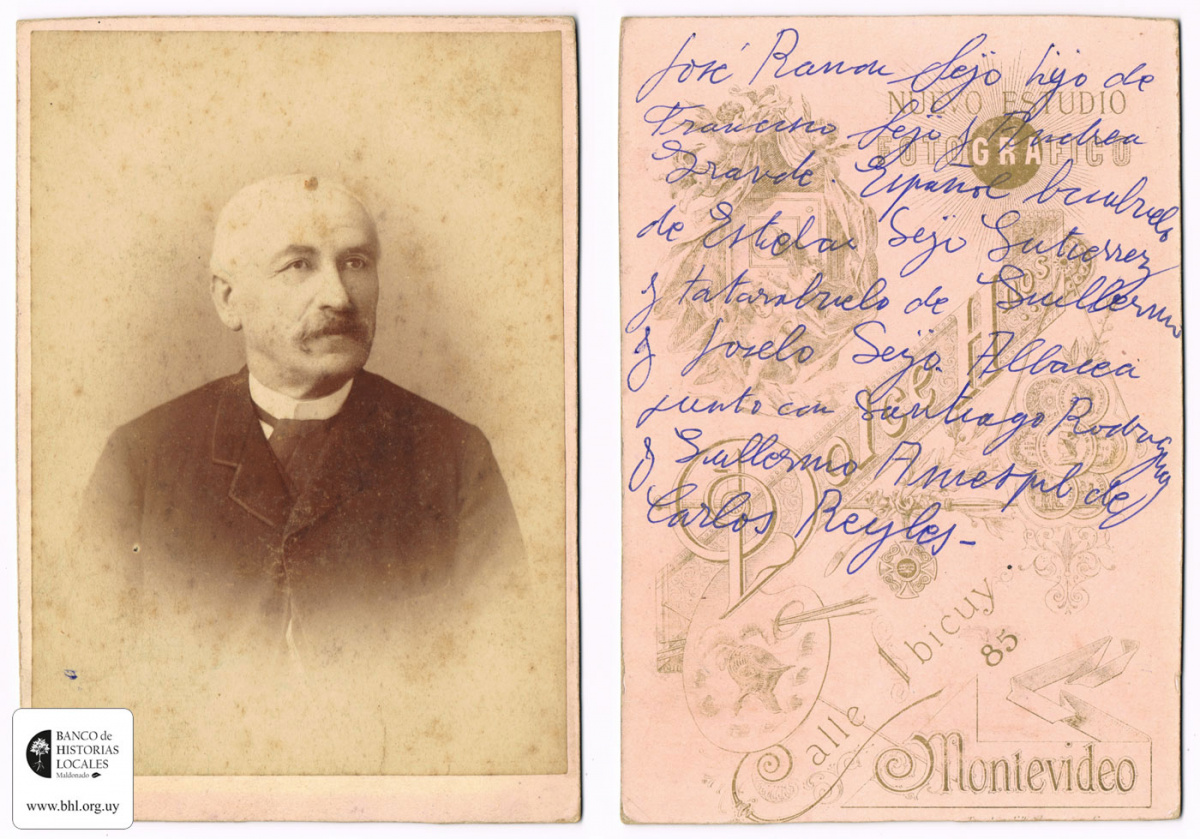 José Ramon Sejo hijo de
Francisco Sejo y Andrea
Grande. Español bisabuelo
de Estela Sejo Gutierrez
y tatarabuelo de Guillermo
y Joselo Sejo. Albacea
junto con Santiago Rodriguez
y Guillermo de
Carlos Reyles-
NUEVO ESTUDIO
FOTOGRAFICO
Dolce Hos
Calle Ibicuy
85
Montevideo
BANCO de
HISTORIAS
LOCALES
Maldonado
www.bhl.org.uy